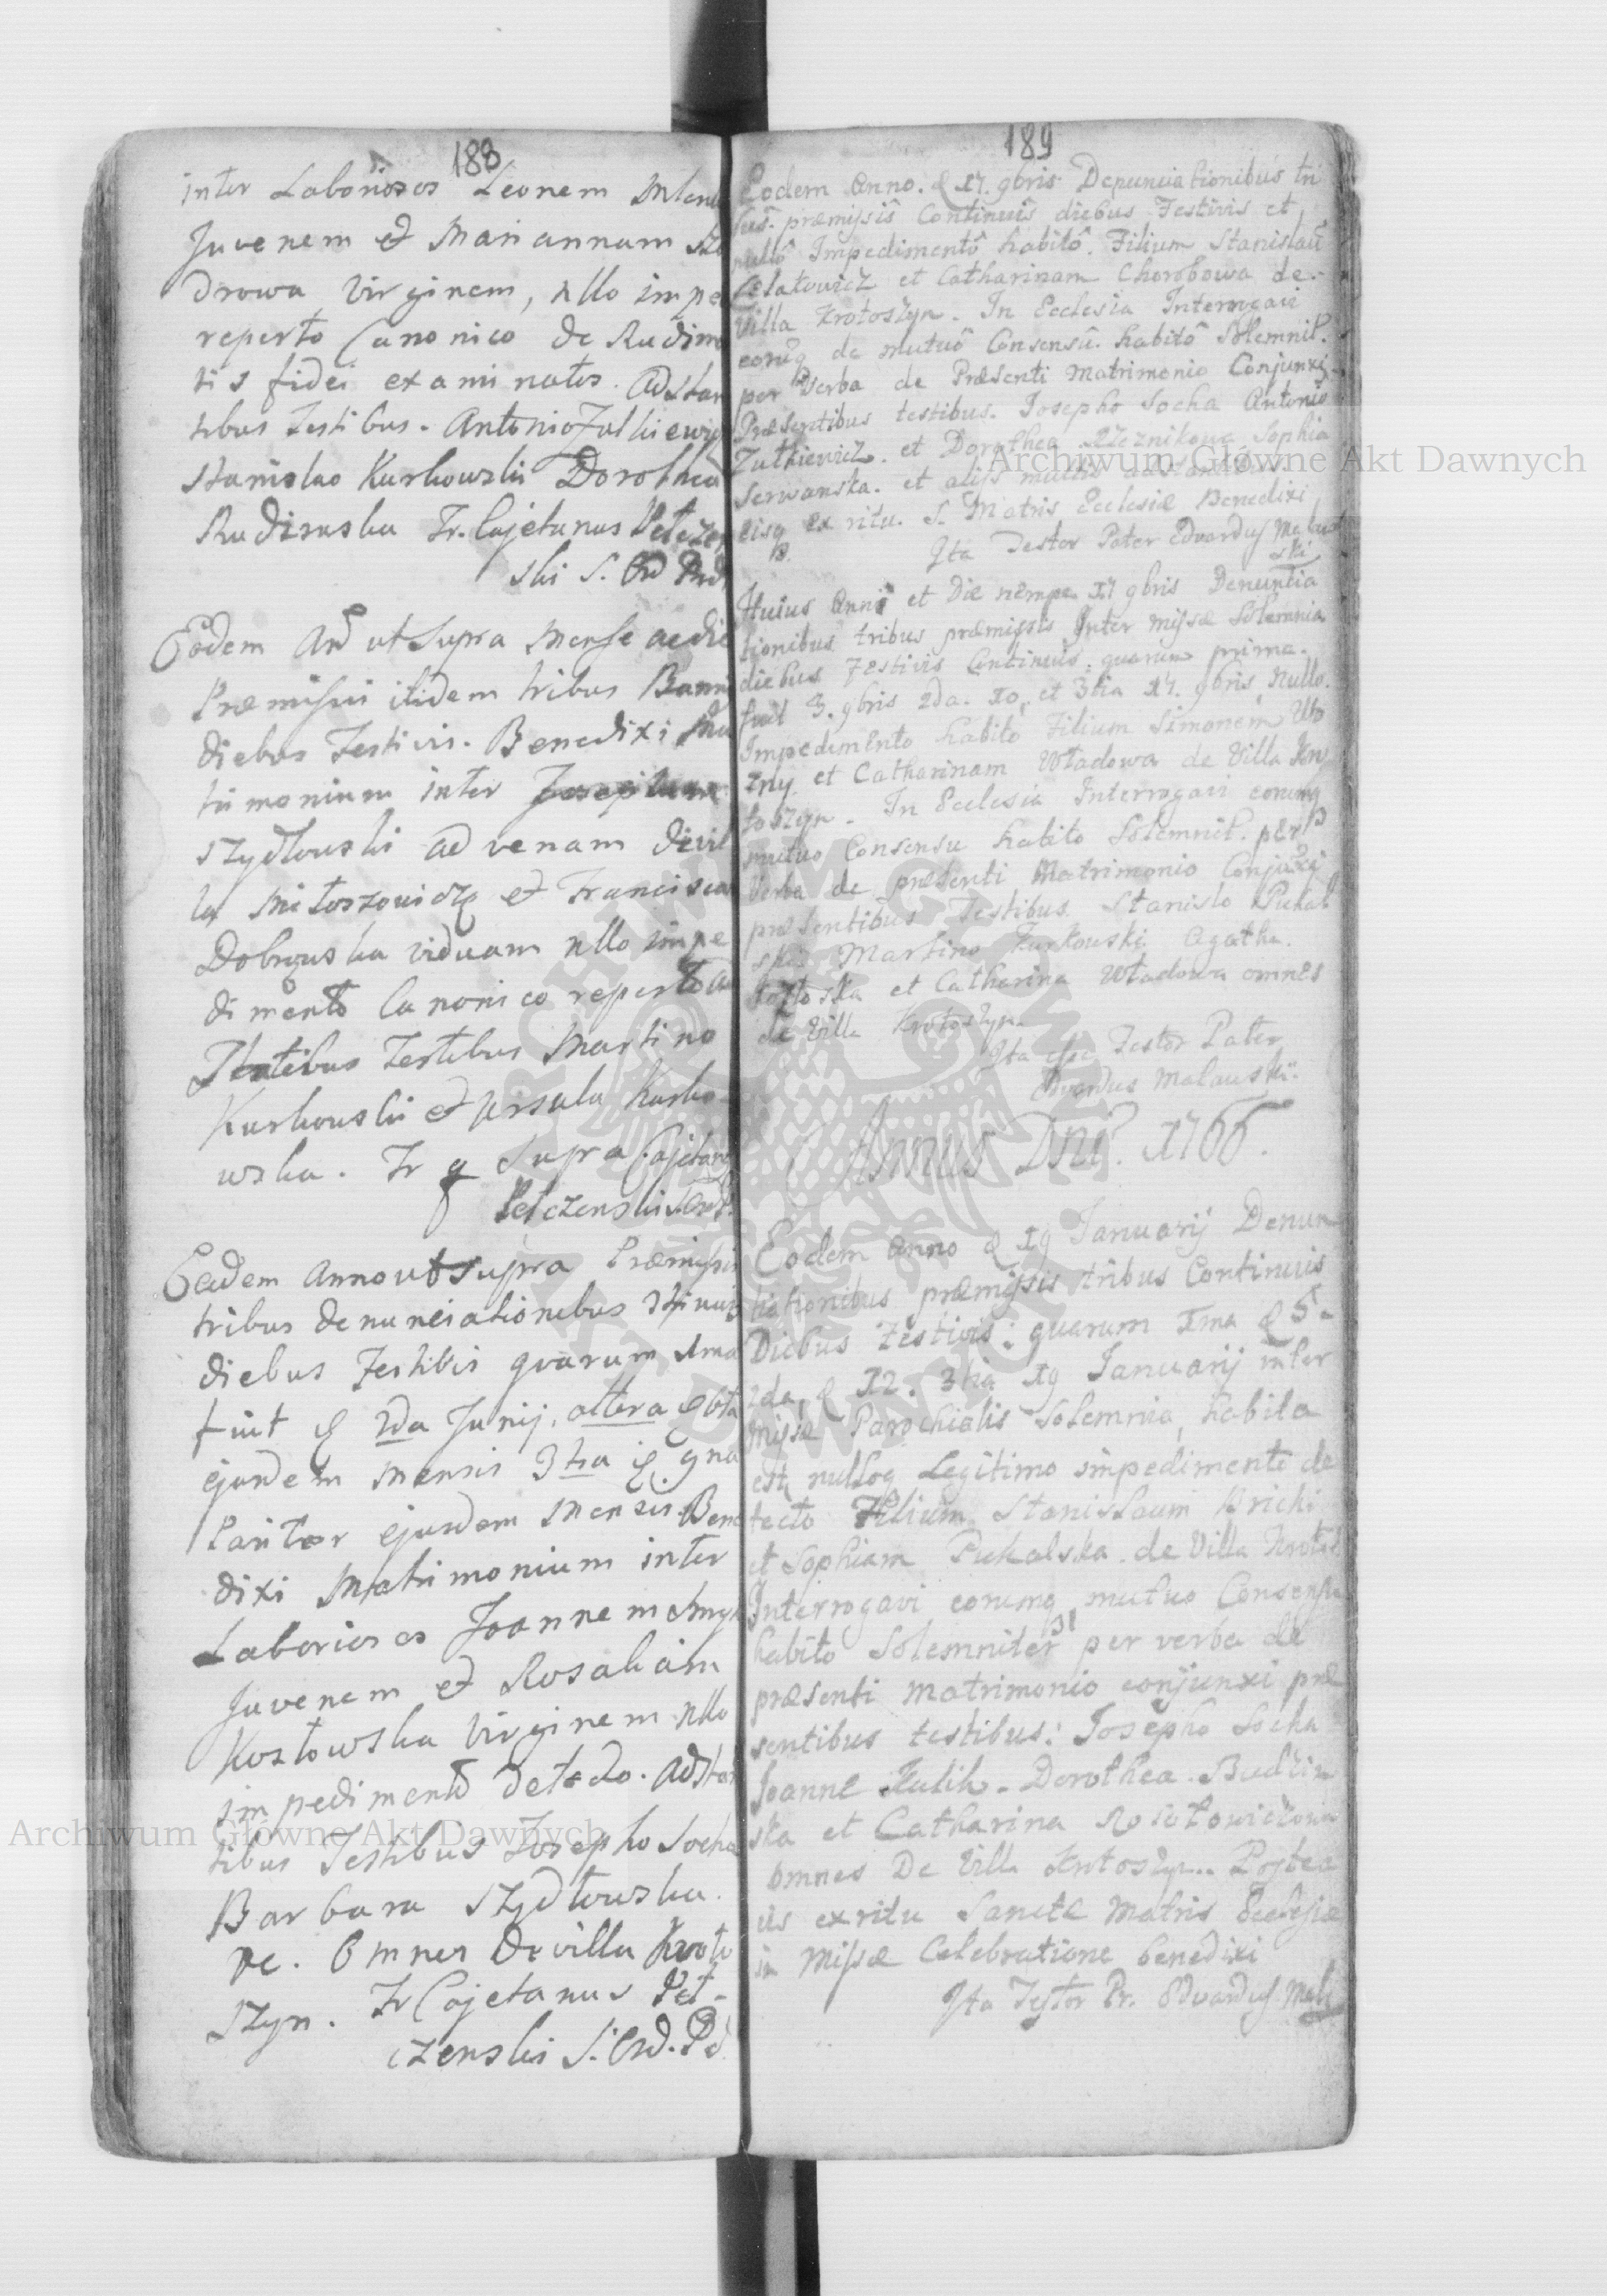 188
inter Laboriosos Leonem
Juvenem et Mariannam
drowa Virginem, nllo impe
reperto Canonico de Rudimen
tis fidei examinatos. Adstan
tibus Testibus. Antonio Zulkiewicz
Stanislao Kurkowski Dorothea
Rudzinska Fr. Cajetanus Pełczen
ski S. Ord Prd
Eodem Ano ut Supra Mense ac die
Præmissis itidem tribus Bannis
diebus Festivis. Benedixi Ma
trimonium inter Josephum
Szydłowski advenam de vil
la Miłoszowicze et Francisca
Dobrowska viduam nllo impe
dimento Canonico reperto
Testibus Martino
Kurkowski et Ursula Kurko
wska. Fr q Supra Cajetanus
Pełczenski S. Ord.
Eodem Anno ut Supra Præmissis
tribus denunciationibus
diebus Festivis quarum 1ma
fuit 2da Junij. altera
ejusdem Mensis 3tia 9na
Pariter ejusdem Mensis. Bene
dixi Matrimonium inter
Laboriosos Joannem
Juvenem et Rosaliam
Kozłowska Virginem nllo
impedimento detecto. Adstan
tibus Testibus Josepho Socha
Barbara Szydłowska.
pc. Omnes De villa Kroto
szyn. Fr Cajetanus Peł-
czenski S. Ord. Pd
189
Eodem Anno. d 17. 9bris Denunciationibus tri
bus. præmissis Continuis diebus Festivis et
nullo Impedimento habito. Filium Stanislau
et Catharinam Chorobowa de.
Villa Krotoszyn. In Ecclesia Interrogavi
eorumq de mutuo Consensu. habito Solemnit.
per Verba de Præsenti Matrimonio Conjunxi
Præsentibus testibus. Josepho Socha Antonio
Zulkiewicz. et Dorothea Rzeznikowa Sophia
Serwanska. et alijs multis adstantibus.
eisq ex ritu. S. Matris Ecclesiæ Benedixi
Ita Testor Pater Edvardus Malaw
ski
Huius Anni et Die nempe 17 9bris Denuntia
tionibus tribus præmissis Inter Missæ Solemnia
diebus Festivis Continuis: quarum prima.
fuit 3. 9bris 2da. 10, et 3tia 17. 9bris, Nullo.
Impedimento habito Filium Simonem
et Catharinam Władowa de Villa Kro
toszyn. In Ecclesia Interrogavi eorumq
mutuo Consensu habito Solemnit. per
Verba de præsenti Matrimonio Conjunxi
præsentibus Testibus Stanislo Pukal
ski Martino Kurkowski Agatha.
et Catharina Władowa omnes
de Villa Krotoszyn
Ita esse Testor Pater
Edvardus Malawski.
Annus Dni. 1766.
Eodem Anno d 19 Januarij Denun
tiationibus præmissis tribus Continuis
Diebus Festivis: quarum 1ma d 5.
2da, d 12. 3tia 19 Januarij inter
Missæ Parochialis Solemnia, habita
est, nulloq Legitimo impedimento de
tecto Filium Stanislaum Kricki
et Sophiam Pukalska. de Villa Krotos
Interrogavi eorumq mutuo Consensu
habito Solemniter per verba de
præsenti Matrimonio conjunxi præ
sentibus testibus: Josepho Socha
Joanne Kulik. Dorothea. Budzin
ska et Catharina
omnes De Villa Krtoszyn.. Postea
iis ex ritu Sanctæ Matris Ecclesiæ
in Missæ Celebratione benedixi
Ita Testor Pr. Edvardus Mala
Archiwum Główne Akt Dawnych
Archiwum Główne Akt Dawnych